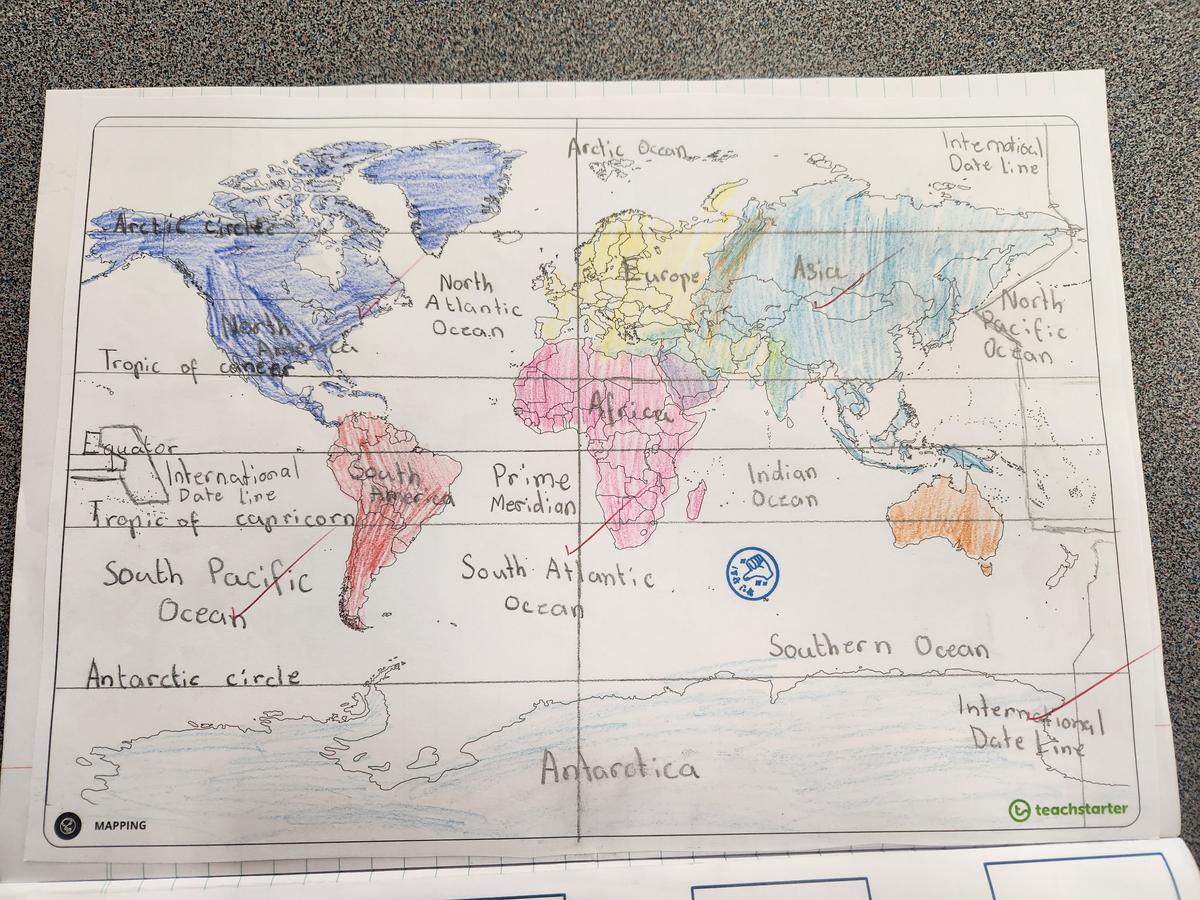 Arctic Ocean
Internatioal
Date Line
Arctic circle
North
Atlantic
Ocean
Europe
Asia
North
Pacific
Ocean
North
America
Tropic of cancer
Africa
Equator
International
Date Line
South
America
Prime
Meridian
Indian
Ocean
Tropic of capricorn
South Pacific
Ocean
South Atlantic
Ocean
Southern Ocean
Antarctic circle
International
Date Line
Antarctica
MAPPING
teachstarter